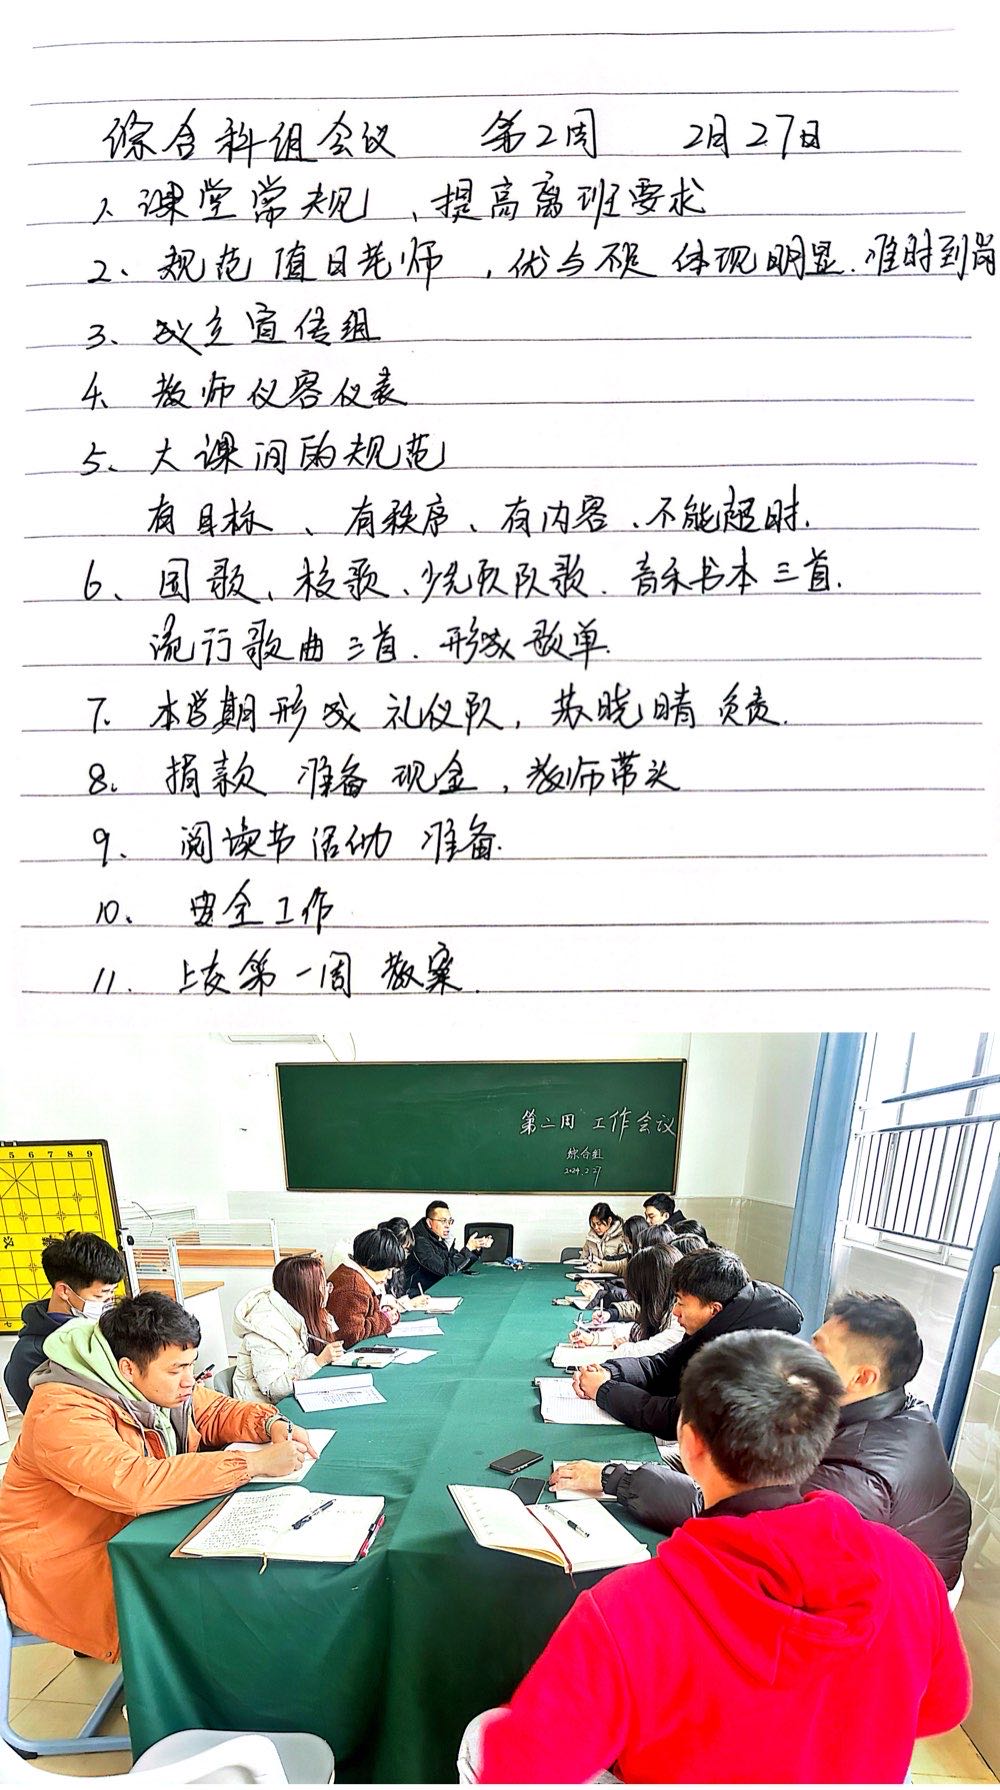 综合科组会议 第2周 2月27日
1、课堂常规、提高离班要求
2、规范值日老师，优与不足体现明显.准时到岗
3、成立宣传组
4、教师仪容仪表
5、大课间的规范
有目标、有秩序、有内容、不能超时.
6、国歌、校歌、少先队队歌.音乐书本三首.
流行歌曲三首.形成歌单.
7.本学期形成礼仪队，苏晓晴负责.
8.捐款 准备现金，教师带头
9.阅读节活动 准备.
10.安全工作
11.上交第一周教案.
第二周 工作会议
综合组
2024.2.27
5 6 7 8 9
汉